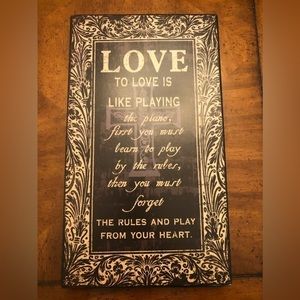 LOVE
TO LOVE IS
LIKE PLAYING
the piano,
first you must
learn to play
by the rules,
then you must
forget
THE RULES AND PLAY
FROM YOUR HEART.